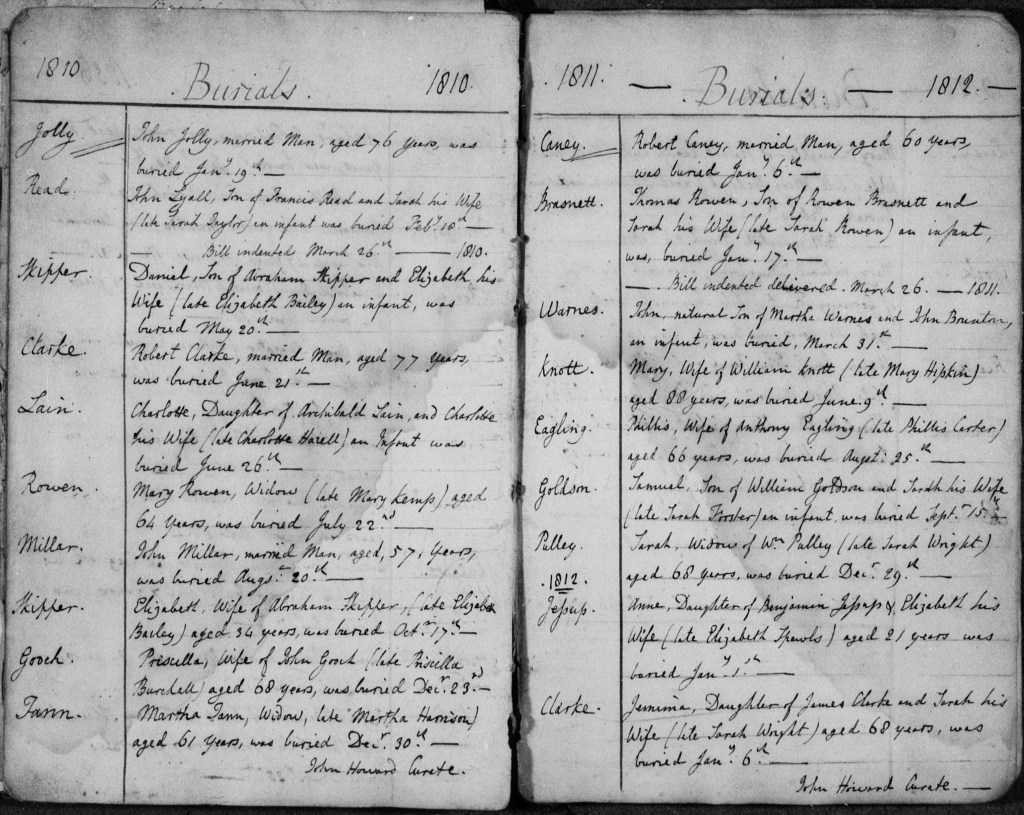 1810 Burials. 1810.
Jolly John Jolly, married Man, aged 76 years, was
buried Jany. 19th —
Read. John Lyall, Son of Francis Read and Sarah his Wife
(late Sarah Taylor) an infant was buried Feby. 18th —
— Bill indented March 26th — 1810.
Skipper. Daniel, Son of Abraham Skipper and Elizabeth his
Wife (late Elizabeth Bailey) an infant, was
buried May 20th —
Clarke. Robert Clarke, married Man, aged 77 years,
was buried June 21st —
Lain. Charlotte, Daughter of Archibald Lain, and Charlotte
his Wife (late Charlotte Harell) an Infant was
buried June 26th —
Rowen. Mary Rowen, Widow (late Mary Kemps) aged
64 years, was buried July 22nd —
Millar. John Millar, married Man, aged, 57, years,
was buried Augst. 20th —
Skipper. Elizabeth, Wife of Abraham Skipper, (late Elizabeth
Bailey) aged 34 years, was buried Octr. 17th —
Gooch. Priscilla, Wife of John Gooch (late Priscilla
Burchall) aged 68 years, was buried Decr. 23rd —
Tann. Martha Tann, Widow, late Martha Harrison)
aged 61 years, was buried Decr. 30th —
John Howard Curate.
1811. — Burials. — 1812. —
Caney. Robert Caney, married Man, aged 60 years,
was buried Jany. 6th —
Brasnett. Thomas Rowen, Son of Rowen Brasnett and
Sarah his Wife (late Sarah Rowen) an infant,
was, buried Jany. 17th —
— Bill indented delivered. March 26. — 1811.
Warnes. John, natural Son of Martha Warnes and John Brunton,
an infant, was buried, March 31st —
Knott. Mary, Wife of William Knott (late Mary Hipkin)
aged 88 years, was buried June 9th —
Eagling. Phillis, Wife of Anthony Eagling (late Phillis Carter)
aged 66 years, was buried Augst. 25th —
Goldson. Samuel, Son of William Goldson and Sarah his Wife
(late Sarah Forster) an infant, was buried Sept. 15th —
Pulley. Sarah, Widow of Wm Pulley (late Sarah Wright)
aged 68 years, was buried Decr. 29th —
.1812.
Jessup. Anne, Daughter of Benjamin Jessup & Elizabeth his
Wife (late Elizabeth Spawls) aged 21 years was
buried Jany. 1st —
Clarke. Jemima, Daughter of James Clarke and Sarah his
Wife (late Sarah Wright) aged 68 years, was
buried Jany. 6th —
John Howard Curate. —